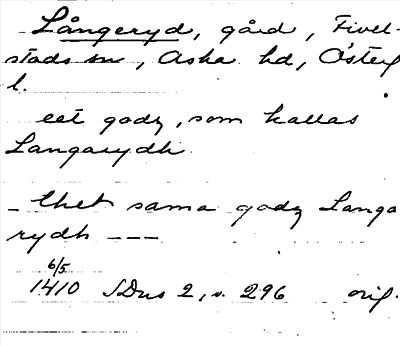 Långeryd, gård, Fivel-
stads sn, Aska hd, Österg
l.
eet godz, som kallas
Langarydh
- thet sama godz Langa
rydh ---
6/5
1410 SDns 2, s. 296 orig.